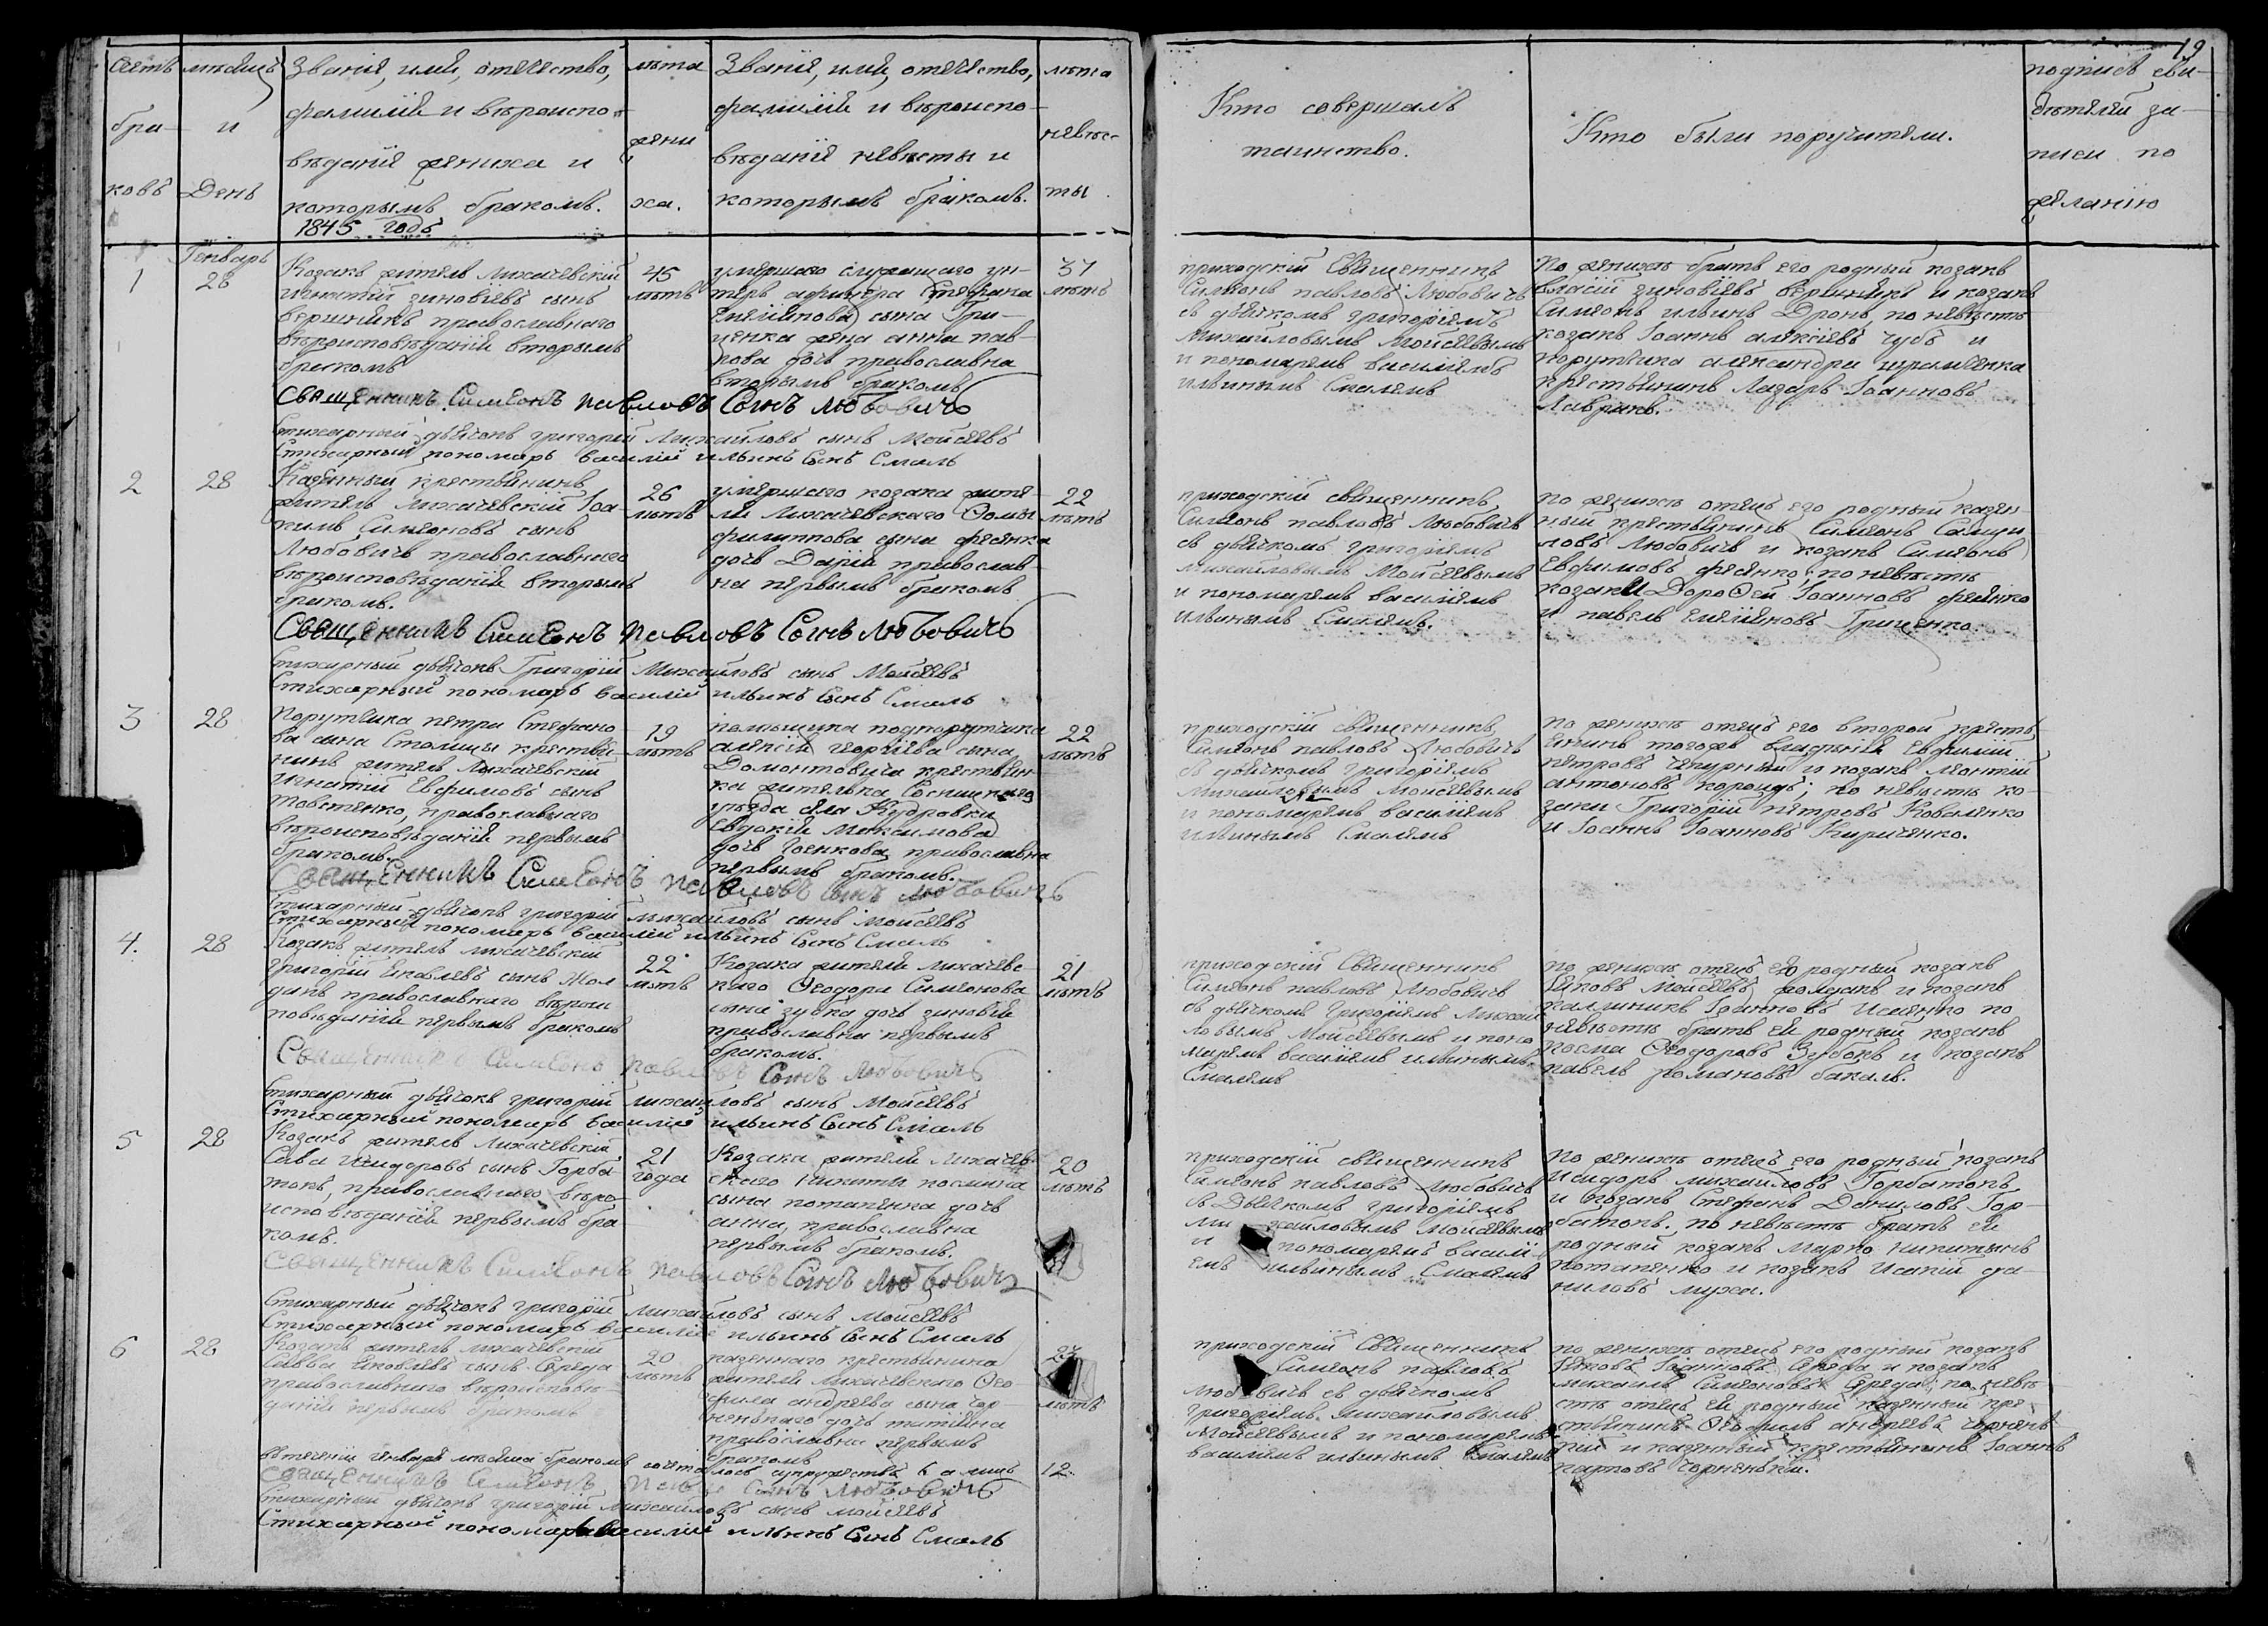 19
Счетъ
бра-
ковъ
мѣсяцъ
и
День
Званіе, имя, отечество,
фамилія и вѣроиспо-
вѣданіе жениха и
которымъ бракомъ.
1845 годъ
лѣта
жени
ха.
Званіе, имя, отечество,
фамилія и вѣроиспо-
вѣданіе невѣсты и
которымъ бракомъ.
лѣта
невѣс-
ты
Кто совершалъ
таинство.
Кто были поручители.
подпись сви-
дѣтелей за-
писи по
желанію
Генварь
1
28
Козакъ житель Лихачевскій
Игнатій Зиновіевъ сынъ
Вершникъ православнаго
вѣроисповѣданія вторымъ
бракомъ
45
лѣтъ
умершаго служащаго ун-
теръ афицера Стефана
Емеліянова сына Гри-
ценка жена анна пав-
лова дочь православна
вторымъ бракомъ
37
лѣтъ
приходскій Священникъ
Симеонъ павловъ Любовичъ
съ дьячкомъ григоріемъ
Михайловымъ Мойсеевымъ
и пономаремъ василіемъ
ильинымъ Смалемъ
По женихѣ братъ его родный козакъ
власій зиновіевъ вершникъ и козакъ
Симеонъ ильинъ Дронь, по невѣстѣ
козакъ Іоаннъ алексіевъ чубъ и
порутчика александра шраменка
крестьянинъ Лазарь Іоанновъ
Лавринъ.
Священникъ Симеонъ павловъ Сынъ Любовичъ
Стихарный дьячокъ григорій Михайловъ сынъ Мойсеевъ
Стихарный пономарь василій ильинъ Сынъ Смаль
2
28
Казенный крестьянинъ
житель Лихачевскій Іоа-
кимъ Симеоновъ сынъ
Любовичъ православнаго
вѣроисповѣданія вторымъ
бракомъ.
26
лѣтъ
умершаго козака жите-
ля Лихачевскаго Ѳомы
филиппова сына фесенка
дочь Дарія православ-
на первымъ бракомъ
22
лѣтъ
приходскій священникъ
Симеонъ павловъ Любовичъ
съ дьячкомъ григоріемъ
михайловымъ Мойсеевымъ
и пономаремъ василіемъ
ильинымъ Смалемъ.
по женихѣ отецъ его родный казен-
ный крестьянинъ Симеонъ Самуи
ловъ Любовичъ и козакъ Симеонъ
Евфимовъ фесенко; по невѣстѣ
козаки Дороѳей Іоанновъ фесенко
и павелъ емеліяновъ Гриценко.
Священникъ Симеонъ павловъ Сынъ Любовичъ
Стихарный дьячокъ Григорій Михайловъ сынъ Мойсеевъ
Стихарный пономарь василій ильинъ Сынъ Смаль
3
28
Порутчика петра Стефано
ва сына Столицы крестья-
нинъ житель Лихачевскій
Игнатій Евфимовъ сынъ
Товстенко, православнаго
вѣроисповѣданія первымъ
бракомъ.
19
лѣтъ
помѣщика подпорутчика
алексія георгіева сына
Домонтовича крестьян-
ка жителька Сосницкаго
уѣзда села Кудровки
Евдокія Максимова
дочь православна
первымъ бракомъ.
22
лѣтъ
приходскій священникъ
Симеонъ павловъ Любовичъ
съ дьячкомъ григоріемъ
Михайловымъ Мойсеевымъ
и пономаремъ василіемъ
ильинымъ Смалемъ
по женихѣ отецъ его второй кресть-
янинъ тогожъ владѣнія Евфимій
петровъ чепурный и козакъ Леонтій
антоновъ коропъ; по невѣстѣ ко-
заки Григорій петровъ Коваленко
и Іоаннъ Іоанновъ Кириченко.
Священникъ Симеонъ павловъ Сынъ Любовичъ
Стихарный дьячокъ григорій михайловъ сынъ мойсеевъ
Стихарный пономарь василій ильинъ Сынъ Смаль
4.
28
Козакъ житель лихачевскій
григорій Яковлевъ сынъ Жол
дакъ православнаго вѣроис
повѣданія первымъ бракомъ
22
лѣтъ
Козака жителя лихачевс-
каго Ѳеодора Симеонова
сына зубка дочь зиновія
православна первымъ
бракомъ.
21
лѣтъ
приходскій Священникъ
Симеонъ павловъ Любовичъ
съ дьячкомъ Григоріемъ Михай
ловымъ Мойсеевымъ и поно
маремъ василіемъ ильинымъ
Смалемъ
по женихѣ отецъ его родный козакъ
Яковъ Мойсеевъ жолдакъ и козакъ
калиникъ Іоанновъ Исаенко по
невѣстѣ братъ ея родный козакъ
косма Ѳеодоровъ Зубокъ и козакъ
павелъ романовъ бакаль.
Священникъ Симеонъ павловъ Сынъ Любовичъ
Стихарный дьячокъ григорій михайловъ сынъ Мойсеевъ
Стихарный пономарь василій ильинъ Сынъ Смаль
5
28
Козакъ житель Лихачевскій
Сава Исидоровъ сынъ Горба-
токъ, православнаго вѣро-
исповѣданія первымъ бра-
комъ.
21
года
Козака жителя Лихачев-
скаго Никиты космина
сына потапенка дочь
анна, православна
первымъ бракомъ.
20
лѣтъ
приходскій священникъ
Симеонъ павловъ Любовичъ
съ Дьячкомъ григоріемъ
михайловымъ Мойсеевымъ
и пономаремъ василі-
емъ ильинымъ Смалемъ
По женихѣ отецъ его родный козакъ
Исидоръ михайловъ Горбатокъ
и козакъ Стефанъ Даниловъ Гор-
батокъ. по невѣстѣ братъ ея
родный козакъ Марко никитинъ
потапенко и козакъ Исакій да-
ниловъ муха.
Священникъ Симеонъ павловъ Сынъ Любовичъ
Стихарный дьячокъ григорій михайловъ сынъ мойсеевъ
Стихарный пономарь василій ильинъ Сынъ Смаль
6
28
Козакъ житель лихачевскій
Савва Яковлевъ сынъ Середа
православнаго вѣроисповѣ-
данія первымъ бракомъ
20
лѣтъ
казеннаго крестьянина
жителя Лихачевскаго Ѳео-
фила андреева сына чор-
ненькаго дочь татіяна
православна первымъ
бракомъ
лѣтъ
приходскій Священникъ
Симеонъ павловъ
Любовичъ съ дьячкомъ
григоріемъ михайловымъ
Мойсеевымъ и пономаремъ
василіемъ ильинымъ Смалемъ
по женихѣ отецъ его родный козакъ
Яковъ Іоанновъ Середа и козакъ
михаилъ Симеоновъ Середа; по невѣ-
стѣ отецъ ея родный казенный кре-
стьянинъ Ѳеофилъ андреевъ чорнень
кій и казенный крестьянинъ Іоаннъ
карповъ чорненькій.
въ теченіи генваря мѣсяца бракомъ сочеталось супружествъ 6 а лицъ 12.
Священникъ Симеонъ павловъ Сынъ Любовичъ
Стихарный дьячокъ григорій михайловъ сынъ мойсеевъ
Стихарный пономарь василій ильинъ Сынъ Смаль